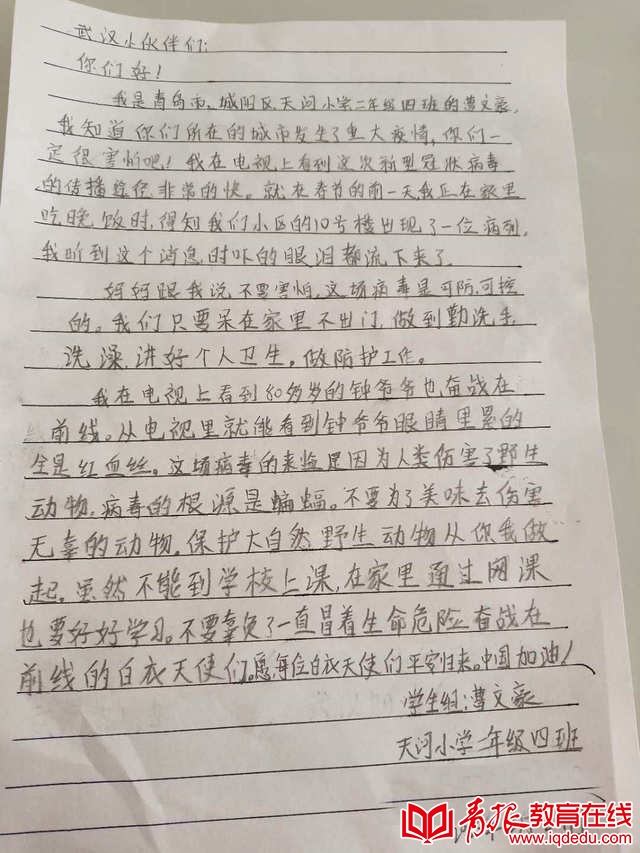 武汉小伙伴们:
你们好!
我是青岛市,城阳区,天河小学二年级四班的曹文豪,
我知道你们所在的城市发生了重大疫情,你们一
定很害怕吧!我在电视上看到这次新型冠状病毒
的传播途径非常的快。就在春节的前一天,我正在家里
吃晚饭时,得知我们小区的10号楼出现了一位病例,
我听到这个消息时吓的眼泪都流下来了。
妈妈跟我说不要害怕,这场病毒是可防,可控
的。我们只要呆在家里不出门,做到勤洗手,
洗澡,讲好个人卫生。做防护工作。
我在电视上看到80多岁的钟爷爷也奋战在
前线。从电视里就能看到钟爷爷眼睛里累的
全是红血丝。这场病毒的来临是因为人类伤害了野生
动物,病毒的根源是蝙蝠。不要为了美味去伤害
无辜的动物。保护大自然野生动物从你我做
起。虽然不能到学校上课,在家里通过网课
也要好好学习。不要辜负了一直冒着生命危险奋战在
前线的白衣天使们。愿每位白衣天使们平安归来。中国加油!
学生组:曹文豪
天河小学二年级四班
青报教育在线
www.iqdedu.com